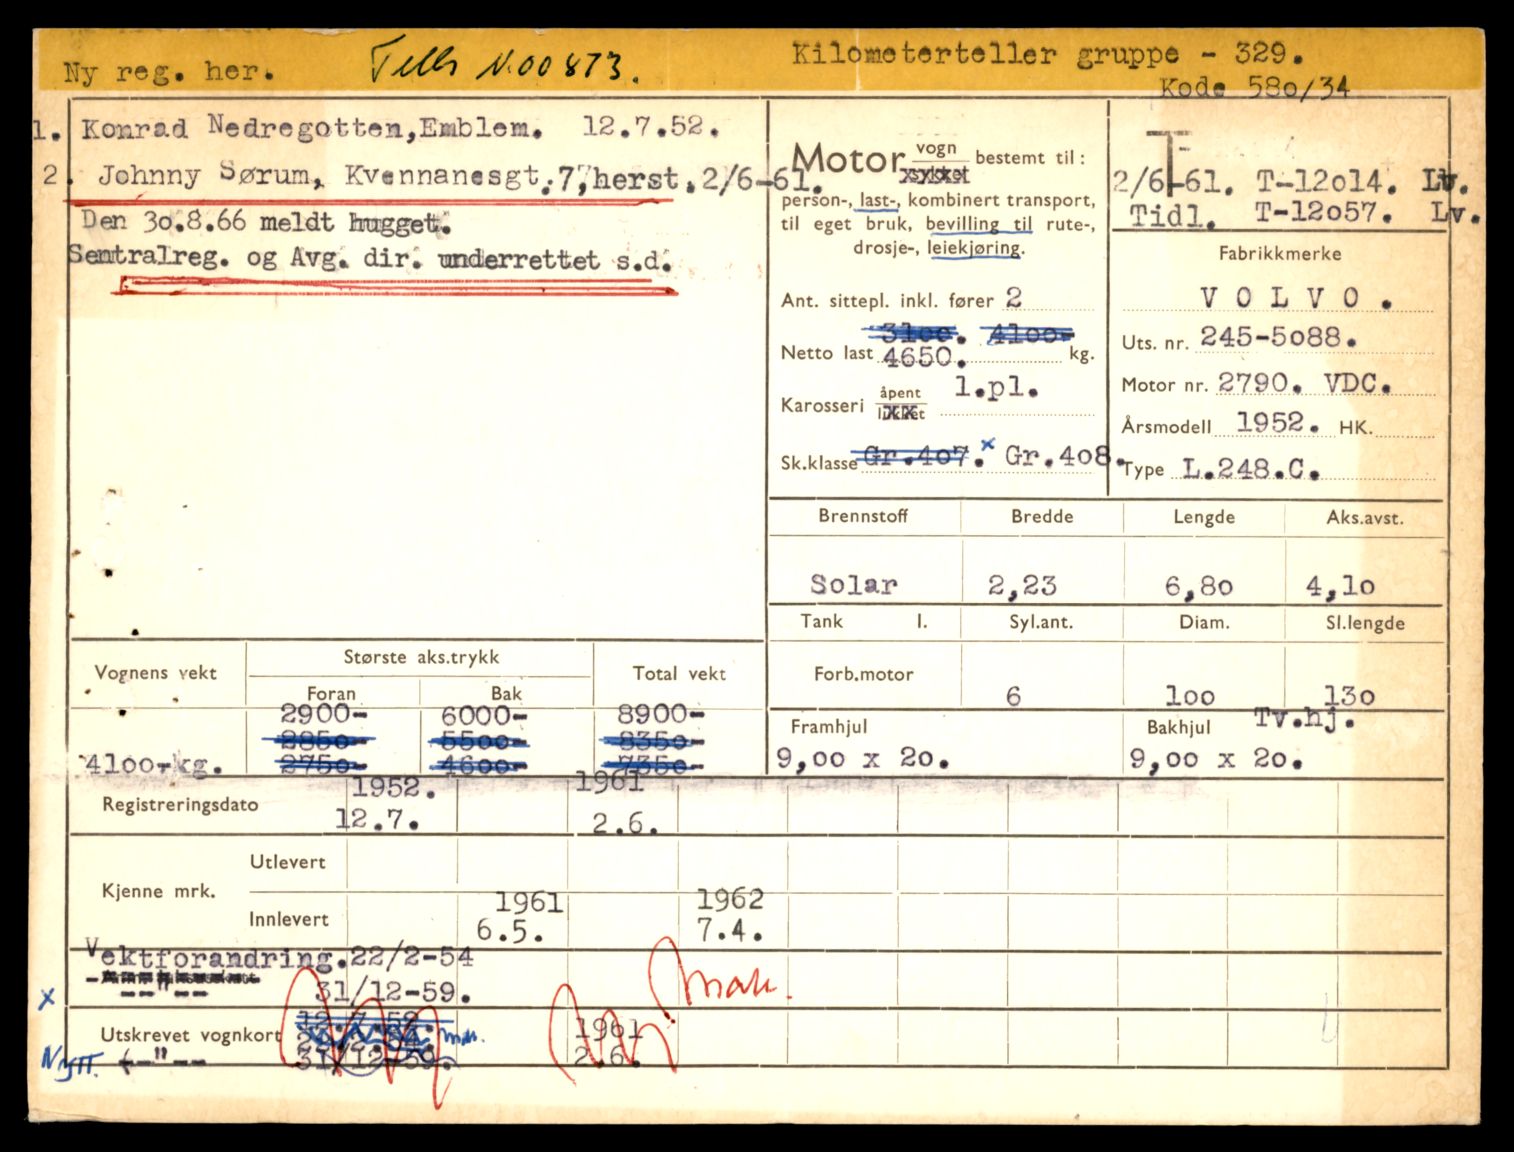 Ny reg. her.
Kilometerteller gruppe - 329.
N.00873.
Kode 580/34
1. Konrad Nedregotten, Emblem. 12.7.52.
2. Johnny Sørum, Kvennanesgt. 7, herst. 2/6-61.
Den 30.8.66 meldt hugget.
Sentralreg. og Avg. dir. underrettet s.d.
Motor vogn
bestemt til:
person-, last-, kombinert transport,
til eget bruk, bevilling til rute-,
drosje-, leiekjøring.
2/6-61. T-12014. Lv.
Tidl. T-12057. Lv.
Fabrikkmerke
VOLVO.
Ant. sittepl. inkl. fører 2
3100. 4100-
Netto last 4650. kg.
Karosseri åpent
lukket
1.pl.
Sk.klasse Gr.407. x Gr.408.
Uts. nr. 245-5088.
Motor nr. 2790. VDC.
Årsmodell 1952. HK.
Type L.248.C.
Brennstoff Bredde Lengde Aks.avst.
Solar 2,23 6,80 4,10
Tank l. Syl.ant. Diam. Sl.lengde
Forb.motor 6 100 130
Framhjul Bakhjul Tv.hj.
9,00 x 20. 9,00 x 20.
Vognens vekt Største aks.trykk Total vekt
Foran Bak
2900- 6000- 8900-
2850- 5500- 8350-
4100-kg. 2750- 4600- 7350-
Registreringsdato 1952. 1961
12.7. 2.6.
Kjenne mrk. Utlevert
Innlevert 1961 1962
6.5. 7.4.
Vektforandring. 22/2-54
x --"-- 31/12-59.
12.7.52.
Utskrevet vognkort 1961
Nytt. --"-- 31/12-59. 2.6.